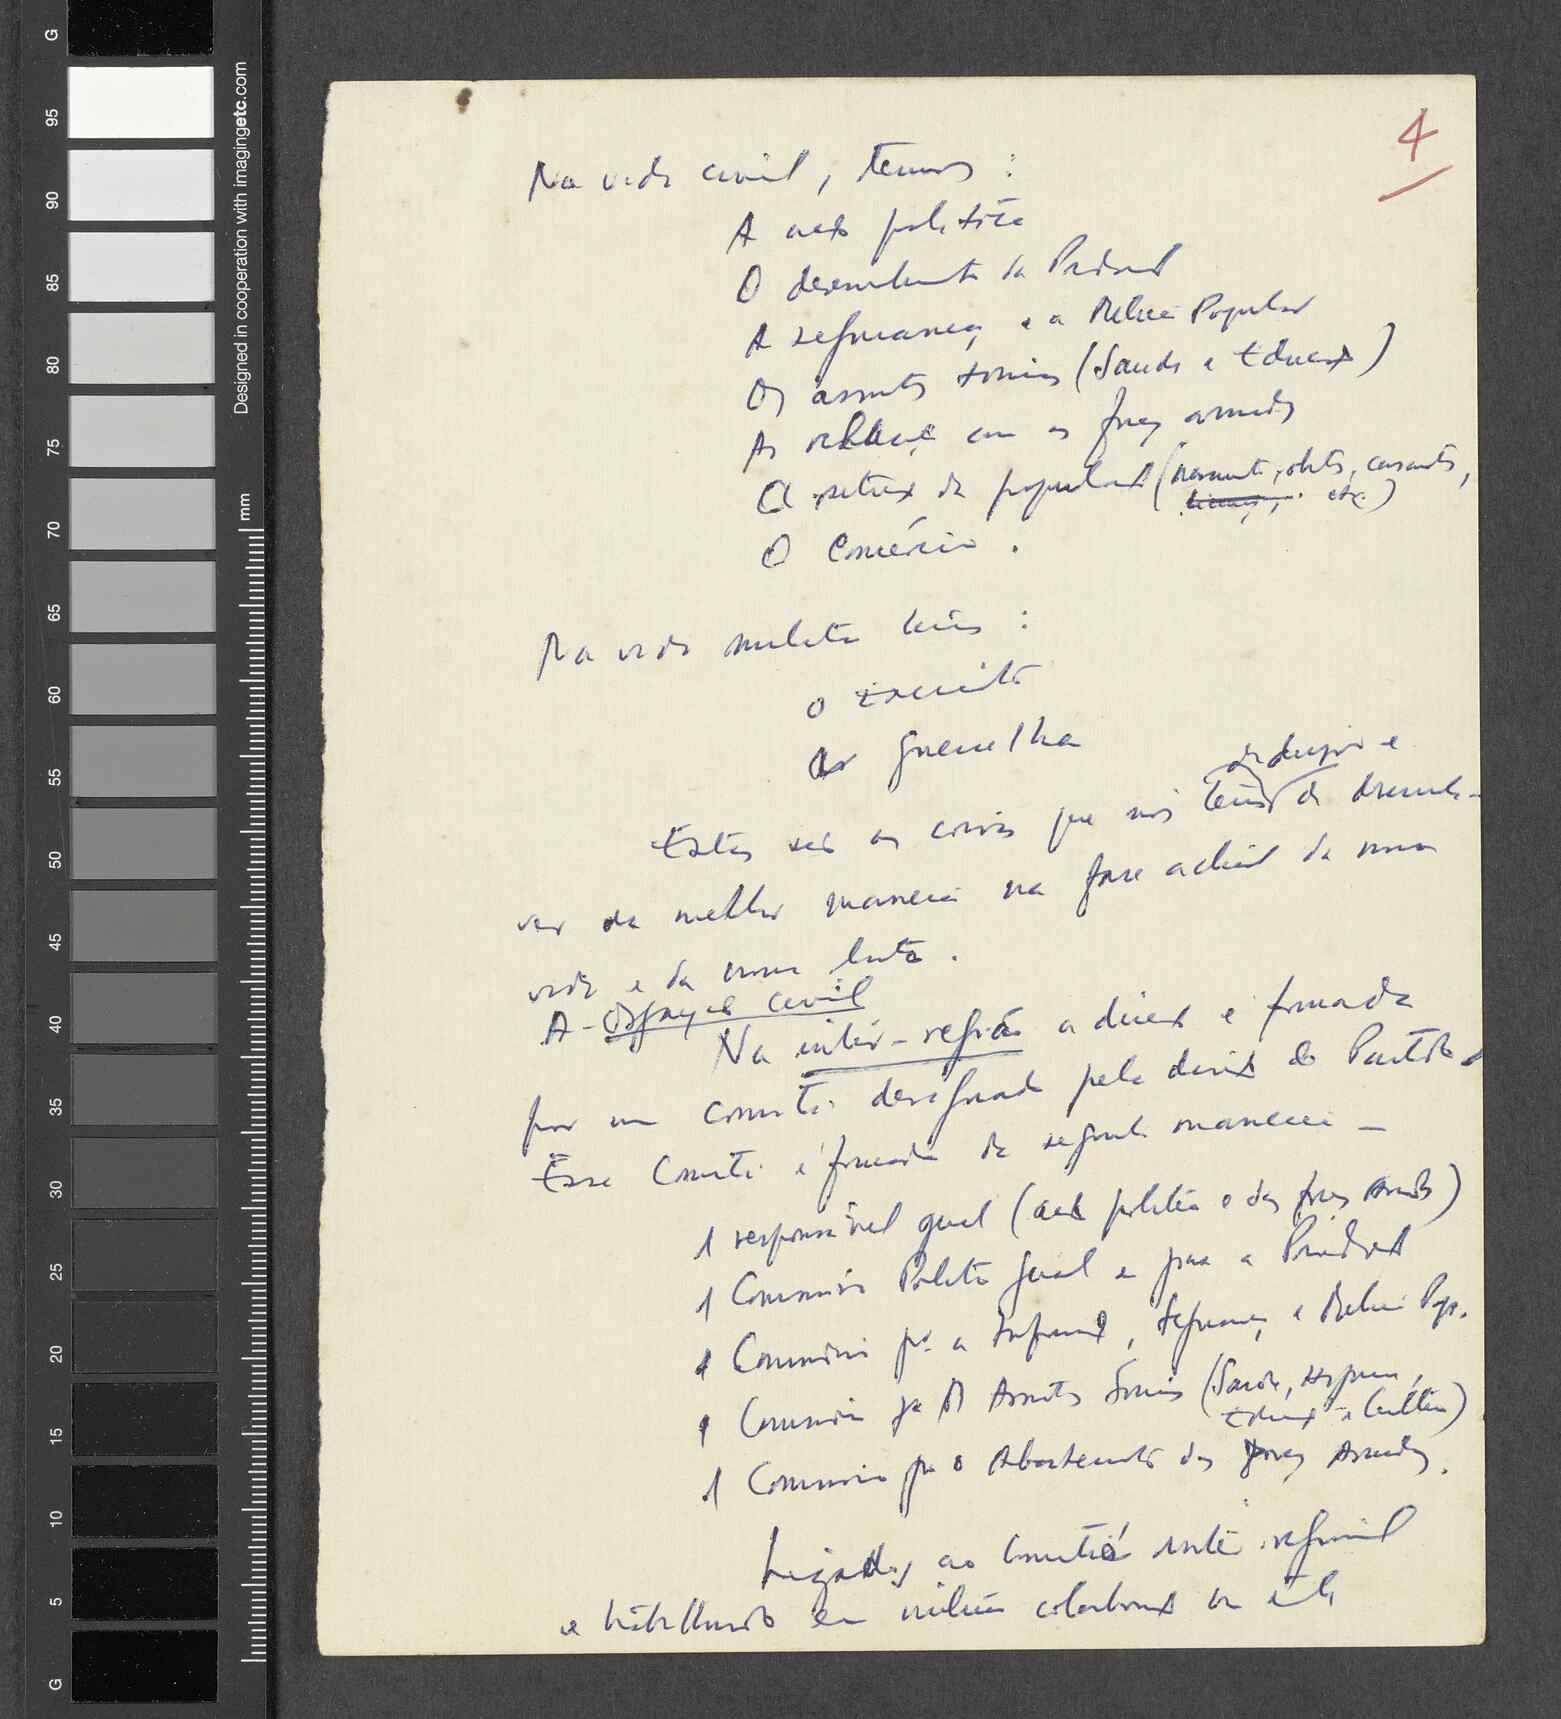 4
Na vida civil, temos:
A acção política
O desenvolvimento da Produção
A segurança e a Milícia Popular
Os assuntos sociais (Saúde e Educação)
As relações com as forças armadas
A da população (nascimentos, óbitos, casamentos,
etc.)
O Comércio.
Na vida militar temos:
o exército
a guerrilha
dirigir e
Estas são as coisas que nós temos de desenvol-
ver da melhor maneira na fase actual da nossa
vida e da nossa luta.
A - Organização civil
Na inter-região a direcção é formada
por um comité designado pela direcção do Partido
Esse Comité é formado da seguinte maneira -
1 responsável geral (acção política e das forças Armadas)
1 Comissário Político geral e para a Produção
1 Comissário pª a Informação, Segurança e Milícia Pop.
1 Comissário pª os Assuntos Sociais (Saúde, Higiene,
Educação e Cultura)
1 Comissário pª o Abastecimento das Forças Armadas.
Ligados ao Comité inter-regional
e trabalhando em íntima colaboração com ele
G
95
90
85
80
75
70
65
60
55
50
45
40
35
30
25
20
15
10
5
G
Designed in cooperation with imagingetc.com
mm